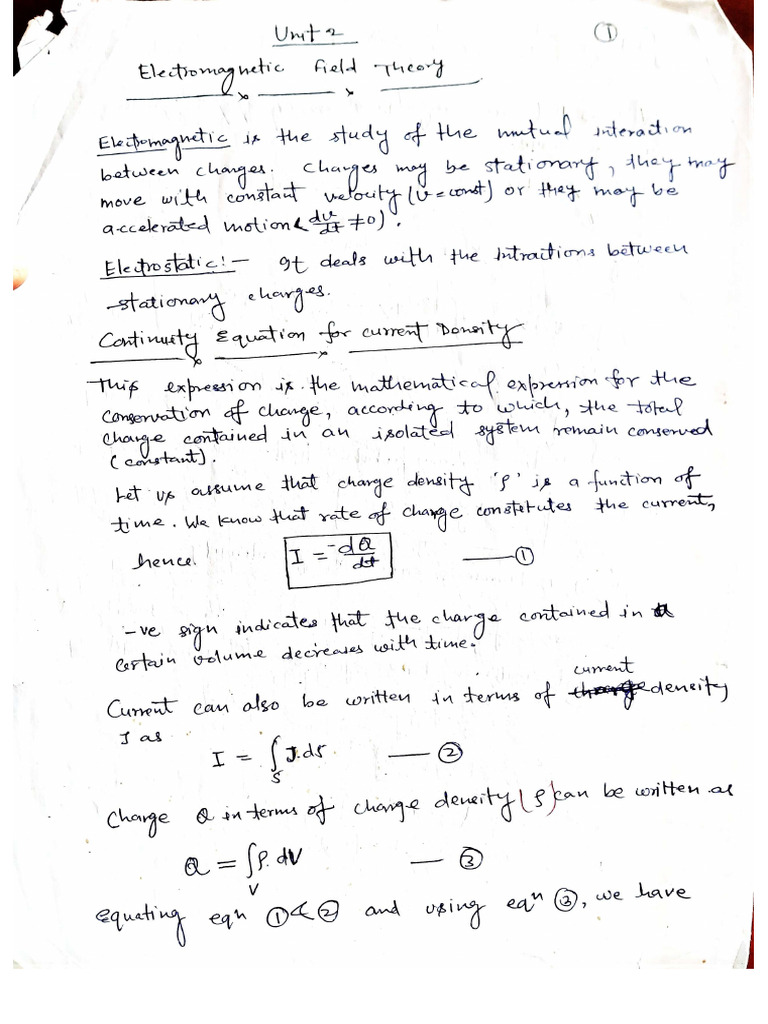 Unit 2
①
Electromagnetic Field Theory
Electromagnetic is the study of the mutual interaction
between charges. Charges may be stationary, they may
move with constant velocity (v = const) or they may be
accelerated motion (dv/dt ≠ 0).
Electrostatic:- It deals with the Intractions between
stationary charges.
Continuity Equation for current Density
This expression is the mathematical expression for the
conservation of charge, according to which, the total
charge contained in an isolated system remain conserved
(constant).
Let us assume that charge density 'ρ' is a function of
time. We know that rate of charge constitutes the current,
hence. I = -dQ/dt —— ①
-ve sign indicates that the charge contained in a
certain volume decreases with time.
current
Current can also be written in terms of density
J as
I = ∫_S J.ds —— ②
Charge Q in terms of charge density (ρ) can be written as
Q = ∫_V ρ.dV — ③
equating eqn ① & ② and using eqn ③, we have